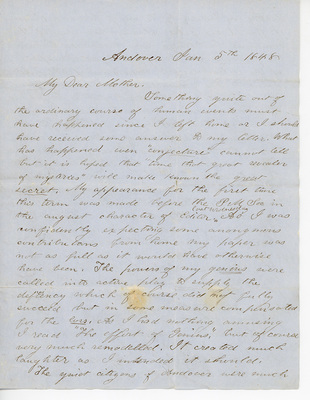 Andover Jan 5th 1848
My Dear Mother.
Something quite out of
the ordinary course of human events must
have happened since I left home or I should
have received some answer to my letter. What
has happened even "conjecture" cannot tell
but it is hoped that time that great revealer
of mysteries will make known the great
secret. My appearance for the first time
this term was made before the Soc in
the august character of Editor. As I was
confidently expecting some anonymous
contributions from home my paper was
not as full as it would have otherwise
have been. The powers of my genious were
called into active play to supply the
deficency which of course did not fully
succeed but in some measure compensated
for the loss. As I had nothing amusing
I read "The effort of Genius," but of course
very much remodelled. It created much
laughter as I intended it should.
The quiet citizens of Andover were much